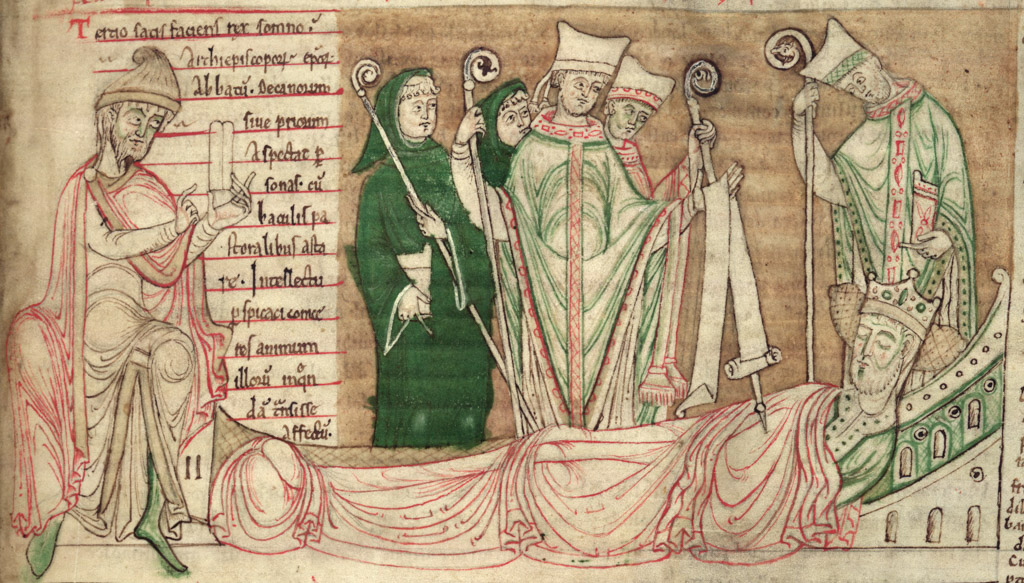 Tercio satis faciens rex somno:
Archiepiscopoꝝ epoꝝ
Abbatũ. Decanorum
sive priorum
Aspectat ꝑ
sonas. cũ
baculis pa
storalibus asta
re. Intellectu
ꝑspicaci conce
animum
illorũ inqͥn
dã tͣnsisse
Affectũ.